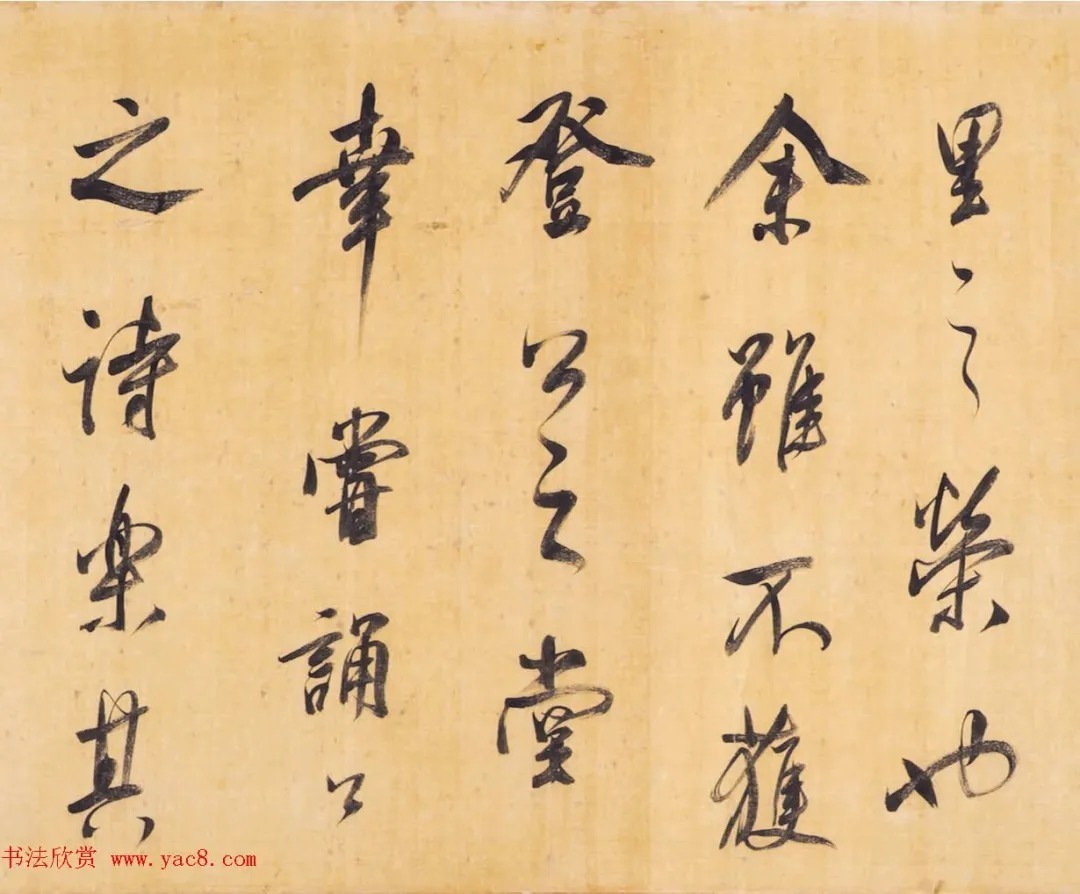 里之榮也
余雖不獲
登公之堂
幸嘗誦公
之詩樂其
书法欣赏 www.yac8.com